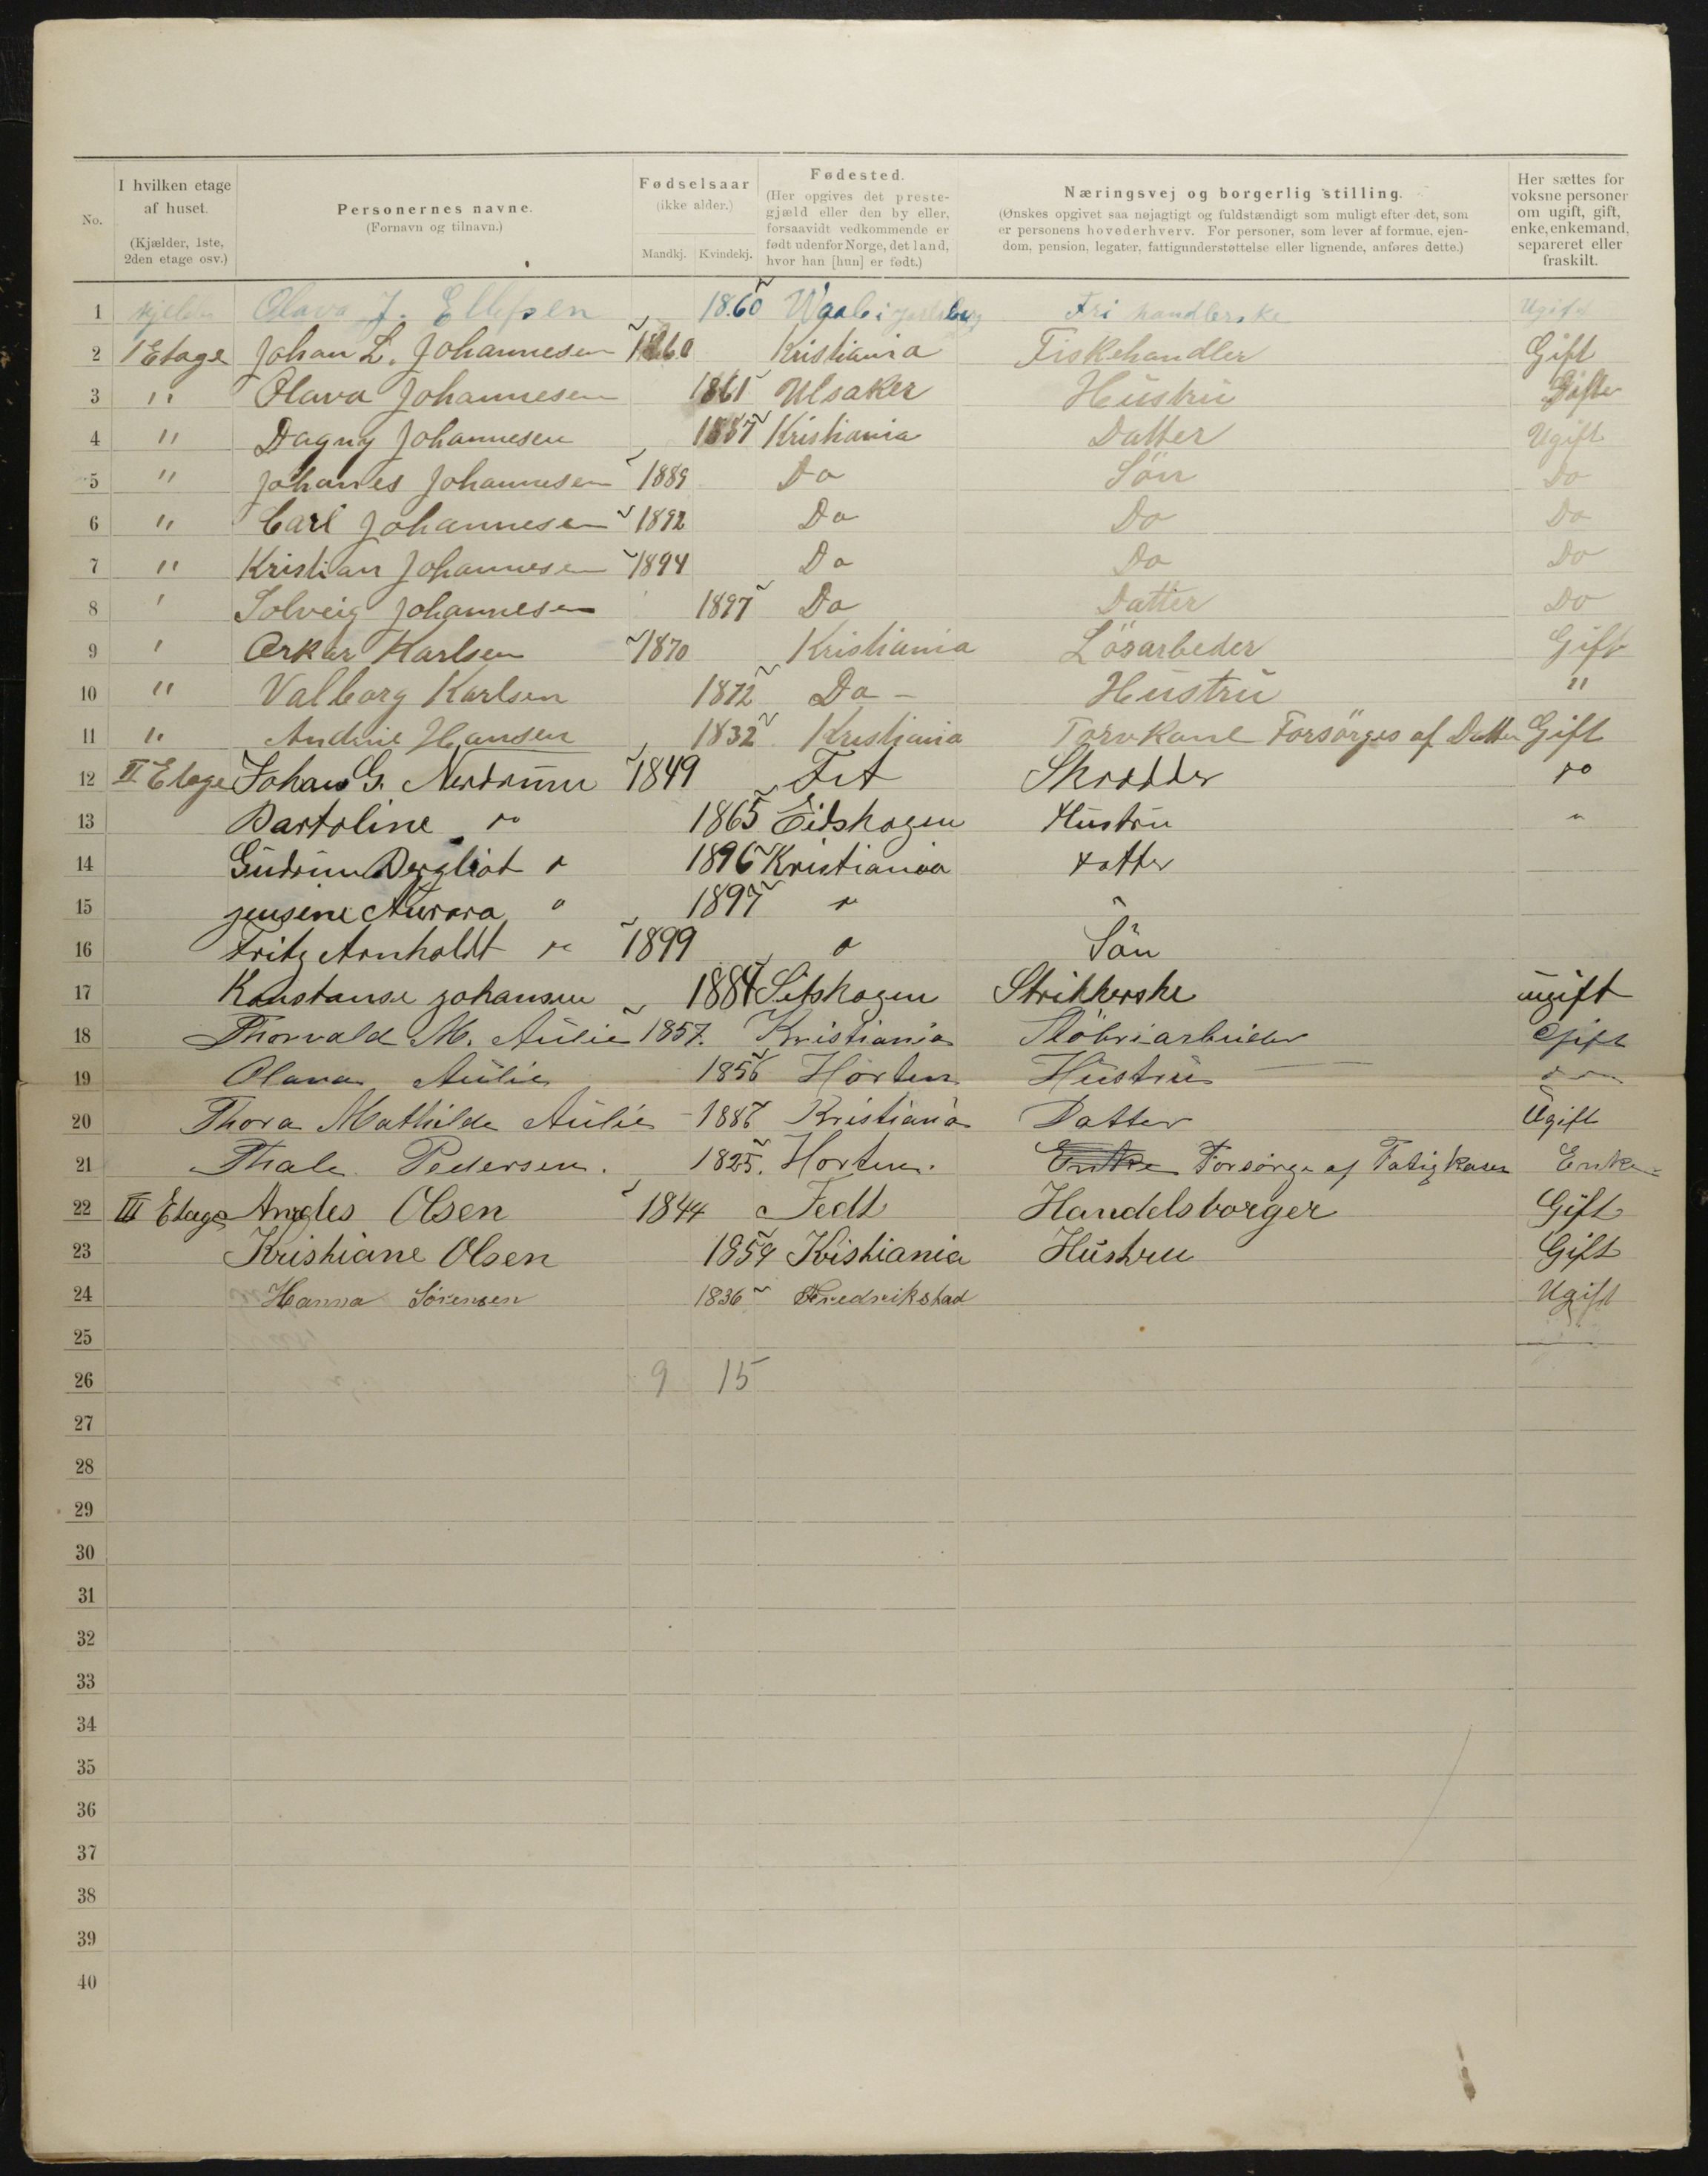 No.
I hvilken etage af huset. (Kjælder, 1ste, 2den etage osv.)
Personernes navne. (Fornavn og tilnavn.)
Fødselsaar (ikke alder.) Mandkj. Kvindekj.
Fødested. (Her opgives det prestegjæld eller den by eller, forsaavidt vedkommende er født udenfor Norge, det land, hvor han [hun] er født.)
Næringsvej og borgerlig stilling. (Ønskes opgivet saa nøjagtigt og fuldstændigt som muligt efter det, som er personens hovederhverv. For personer, som lever af formue, ejendom, pension, legater, fattigunderstøttelse eller lignende, anføres dette.)
Her sættes for voksne personer om ugift, gift, enke, enkemand, separeret eller fraskilt.
1 Olava J. Ellefsen 1860 Fri handlerske Ugift
2 1 Etage Johan L. Johannesen 1860 Kristiania Fiskehandler Gift
3 " Olava Johannesen 1861 Ulsaker Hustru Gift
4 " Dagny Johannesen 1887 Kristiania Datter Ugift
5 " Johanes Johannesen 1889 Do Sön Do
6 " Carl Johannesen 1892 Do Do Do
7 " Kristian Johannesen 1894 Do Do Do
8 " Solveig Johannesen 1897 Do Datter Do
9 " Oskar Karlsen 1870 Kristiania Lösarbeder Gift
10 " Valborg Karlsen 1872 Do - Hustru "
11 " Andine Hansen 1832 Kristiania Forsörges af Datter Gift
12 II Etage Johan G. Nerdrum 1849 Fet Skrædder do
13 Bartoline do 1865 Eidskogen Hustru "
14 Gudrun Bergliot do 1896 Kristiania datter
15 Jensine Aurora do 1897 do "
16 Fritz Arnholdt do 1899 do Sön
17 Konstanse Johansen 1884 Strikkerske ugift
18 Thorvald M. Aulie 1857. Kristiania Stöberiarbeider Gift
19 Olava Aulie 1856 Horten Hustru do
20 Thora Mathilde Aulie - 1886 Kristiania Datter Ugift
21 Thale Pedersen. 1825. Horten. Enke Forsörges af Fatigkasen Enke
22 III Etage Olsen 1844 Handelsborger Gift
23 Kristiane Olsen 1859 Kristiania Hustru Gift
24 Hanna Sörensen 1836 Fredrikstad Ugift
25
26 9 15
27
28
29
30
31
32
33
34
35
36
37
38
39
40